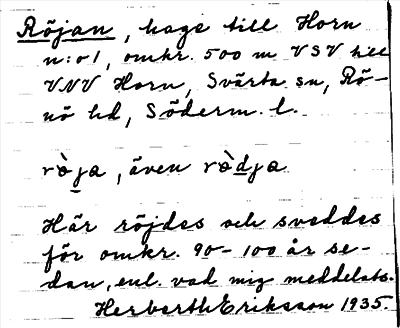 Röjan, hage till Horn
n:o 1, omkr. 500 m VSV till
VNV Horn, Svärta sn, Rö-
nö hd, Söderm. l.
rò̀ja, även rò̀dja
Här röjdes och sveddes
för omkr. 90-100 år se-
dan, enl. vad mig meddelats.
Herbert Eriksson 1935.